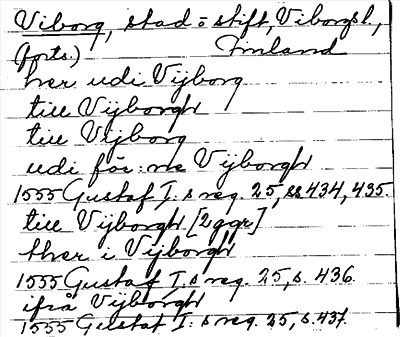 Viborg, stad o stift, Viborgsl.,
(forts.) Finland
her udi Vijborg
till Vijborgh
till Vijborg
udi för:ne Vijborgh
1555 Gustaf I:s reg. 25, ss 434, 435.
till Vijborgh [2 ggr]
ther i Vijborgh
1555 Gustaf I:s reg. 25, s. 436
ifrå Vijborgh
1555 Gustaf I:s reg. 25, s. 437.